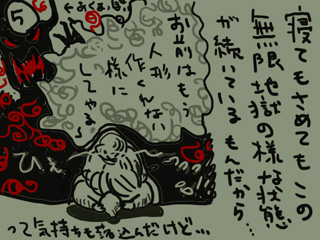 寝てもさめても この
無限地獄の様な状態
が続いている もんだから…
⑤
←あくま、的
お前はもう
人形
作くんない
様に
してやる〜
ひぇ
って気持ちも落込んだけど…